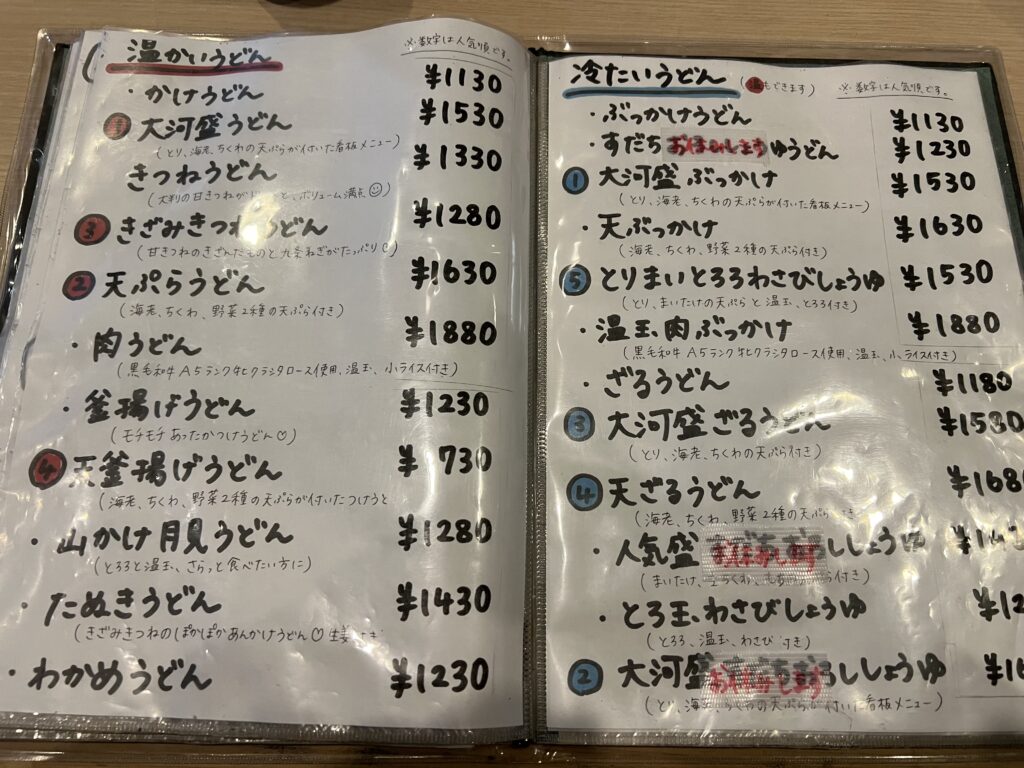 温かいうどん
※数字は人気順です。
・かけうどん ¥1130
① 大河盛うどん ¥1530
(とり、海老、ちくわの天ぷらが付いた看板メニュー)
きつねうどん ¥1330
(大判の甘きつねが と、ボリューム満点☺)
③ きざみきつねうどん ¥1280
(甘きつねのきざんだものと九条ねぎがたっぷり
② 天ぷらうどん ¥1630
(海老、ちくわ、野菜2種の天ぷら付き)
・肉うどん ¥1880
(黒毛和牛A5ランク牝クラシタロース使用、温玉、小ライス付き)
・釜揚げうどん ¥1230
(モチモチあったかつけうどん♡)
④ 天釜揚げうどん ¥ 730
(海老、ちくわ、野菜2種の天ぷらが付いたつけうど
・山かけ月見うどん ¥1280
(とろろと温玉、さらっと食べたい方に)
・たぬきうどん ¥1430
(きざみきつねのぽかぽかあんかけうどん♡生姜 付き
・わかめうどん ¥1230
冷たいうどん (温もできます)
※数字は人気順です。
・ぶっかけうどん ¥1130
・すだち お休みします ゆうどん ¥1230
① 大河盛ぶっかけ ¥1530
(とり、海老、ちくわの天ぷらが付いた看板メニュー)
・天ぶっかけ ¥1630
(海老、ちくわ、野菜2種の天ぷら付き)
⑤ とりまいとろろわさびしょうゆ ¥1530
(とり、まいたけの天ぷらと温玉、とろろ付き)
・温玉肉ぶっかけ ¥1880
(黒毛和牛A5ランク牝クラシタロース使用、温玉、小ライス付き)
・ざるうどん ¥1180
③ 大河盛ざるうどん ¥1580
(とり、海老、ちくわの天ぷら付き)
④ 天ざるうどん ¥168
(海老、ちくわ、野菜2種の天ぷら 付き)
・人気盛 お休みします ししょうゆ ¥14
(まいたけ、 ちくわ、 付き)
・とろ玉わさびしょうゆ ¥12
(とろろ、温玉、わさび付き)
② 大河盛 お休みします ししょうゆ ¥1
(とり、海老、ちくわの天ぷらが付いた看板メニュー)